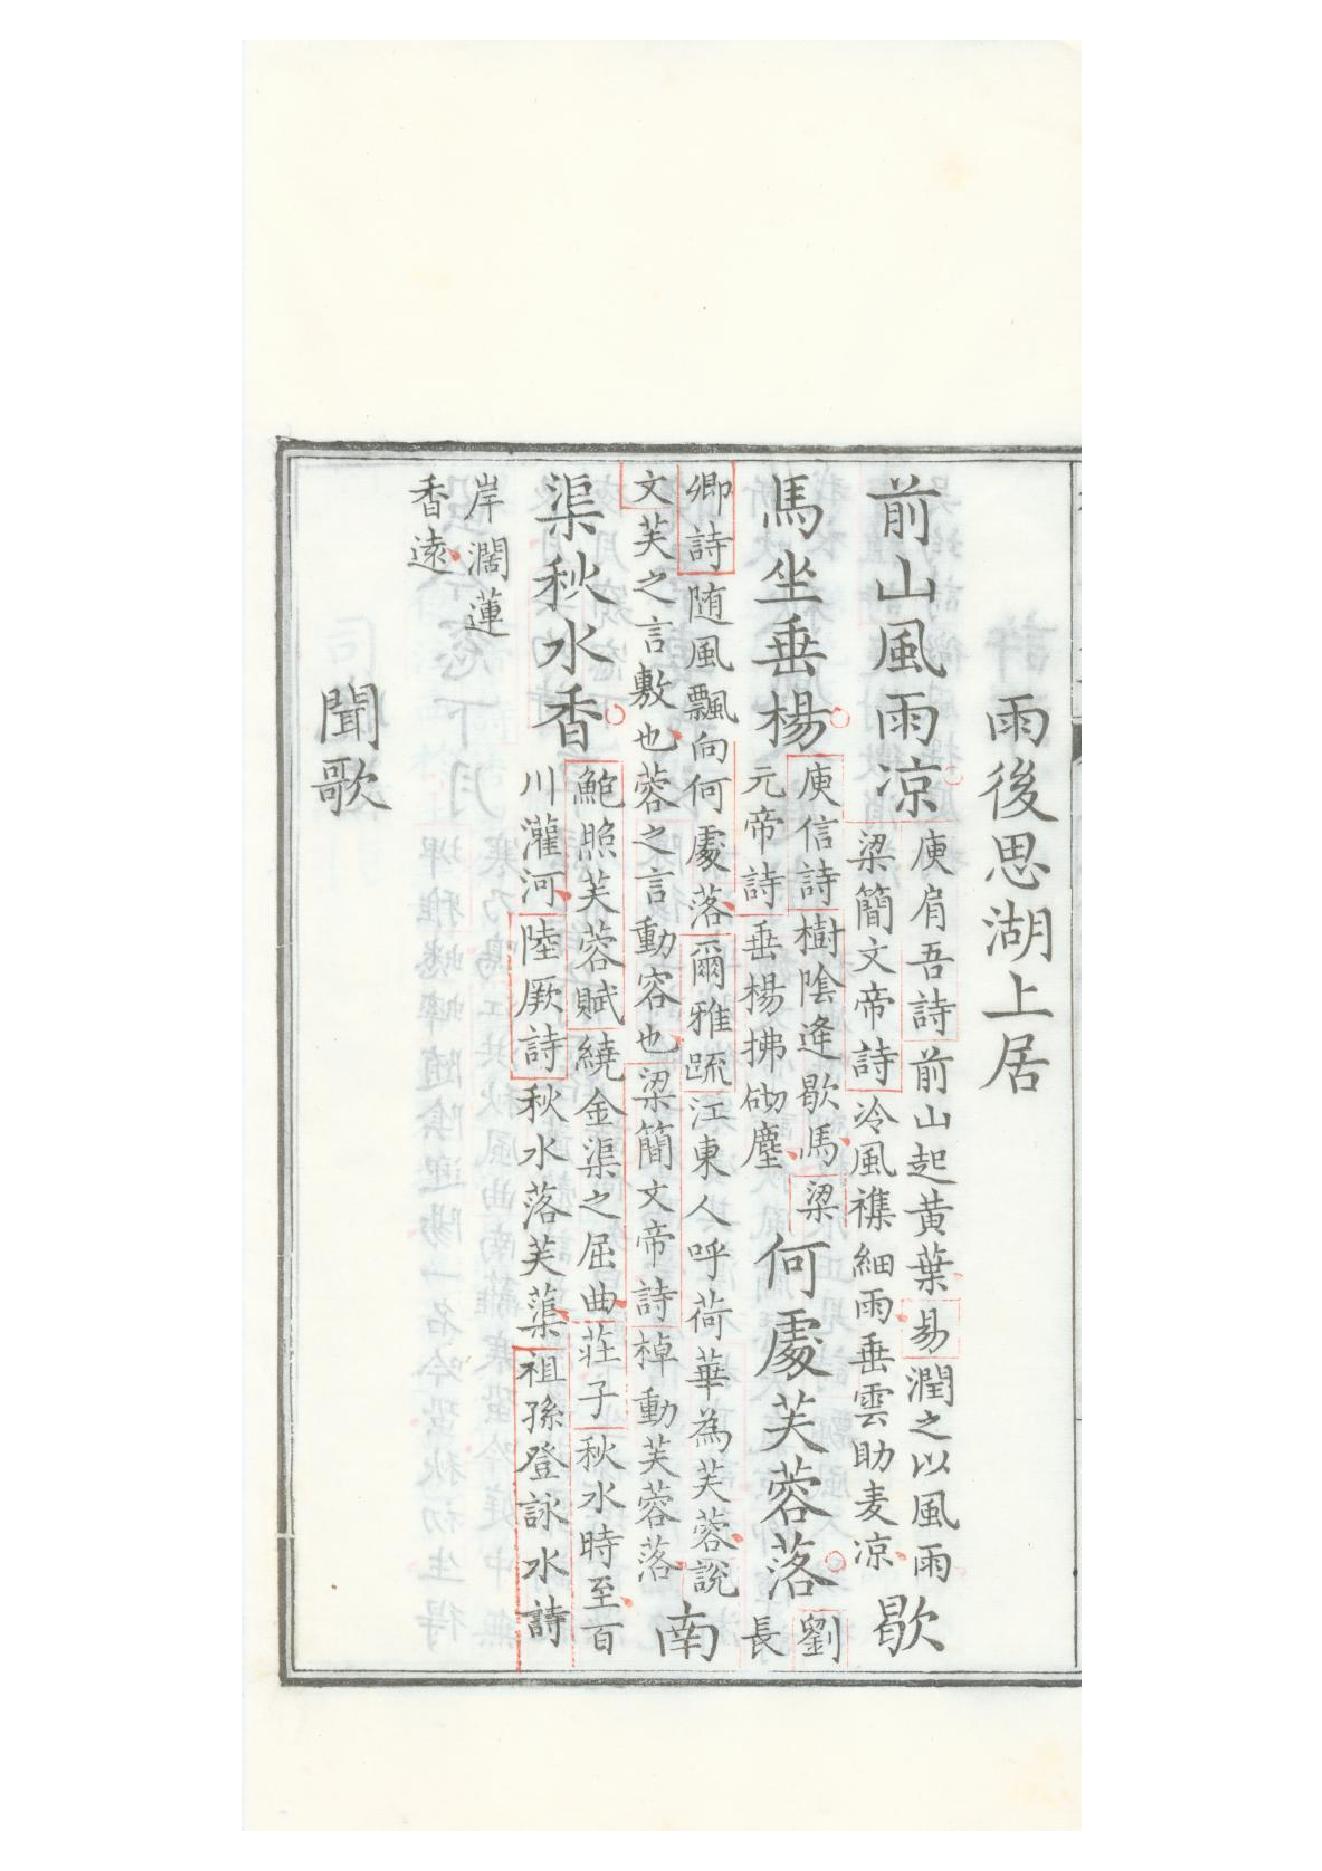 雨後思湖上居
前山風雨凉庾肩吾詩前山起黄葉易潤之以風雨
梁簡文帝詩冷風襍細雨垂雲助麦凉歇
馬坐垂楊庾信詩樹陰逢歇馬梁
元帝詩垂楊拂砌塵何處芙蓉落劉
長
卿詩随風飄向何處落爾雅疏江東人呼荷華為芙蓉說
文芙之言敷也蓉之言動容也梁簡文帝詩棹動芙蓉落南
渠秋水香鮑照芙蓉賦繞金渠之屈曲莊子秋水時至百
川灌河陸厥詩秋水落芙蕖祖孫登詠水詩
岸濶蓮
香遠
聞歌